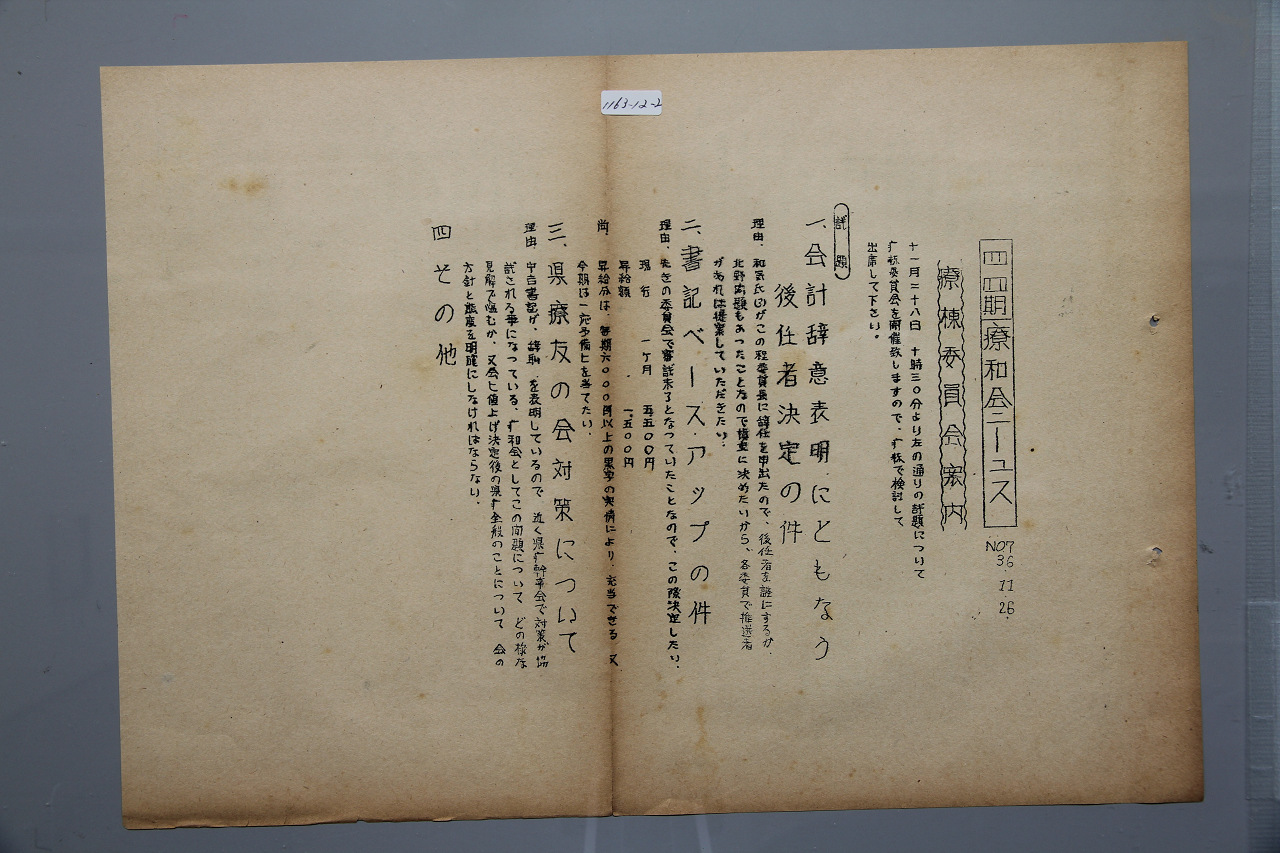 1163-12-2
四四期療和会ニュース
NO7
36
11
26
療棟委員会案内
十一月二十八日 十時三〇分より左の通りの議題について
疒棟委員会を開催致しますので、疒棟で検討して
出席して下さい。
議題
一、会計辞意表明にともなう
後任者決定の件
理由、和気氏がこの程委員長に辞任を申出たので、後任者を誰にするか、
北野問題もあったことなので慎重に決めたいから、各委員で推選者
があれば提案していただきたい。
二、書記ベース・アップの件
理由、先きの委員会で審議未了となつていたことなので、この際決定したい。
現行 一ケ月 五、五〇〇円
昇給額 一、五〇〇円
尚、昇給分は、毎期六〇〇〇円以上の黒字の実情により、充当できる 又
今期は一応予備ヒを当てたい。
三、県療友の会対策について
理由、中吉書記が、辞職を表明しているので 近く県疒幹事会で対策が協
議される事になつている、疒和会としてこの問題について どの様な
見解で臨むか、又会ヒ値上げ決定後の県疒全般のことについて 会の
方針と態度を明確にしなければならない。
四 その他